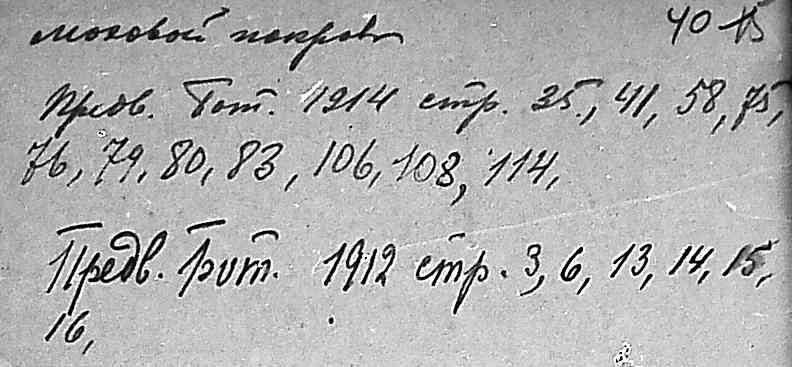 моховой покров 40
Предв. Бот. 1914 стр. 35, 41, 58, 75,
76, 79, 80, 83, 106, 108, 114,
Предв. Бот. 1912 стр. 3, 6, 13, 14, 15,
16,